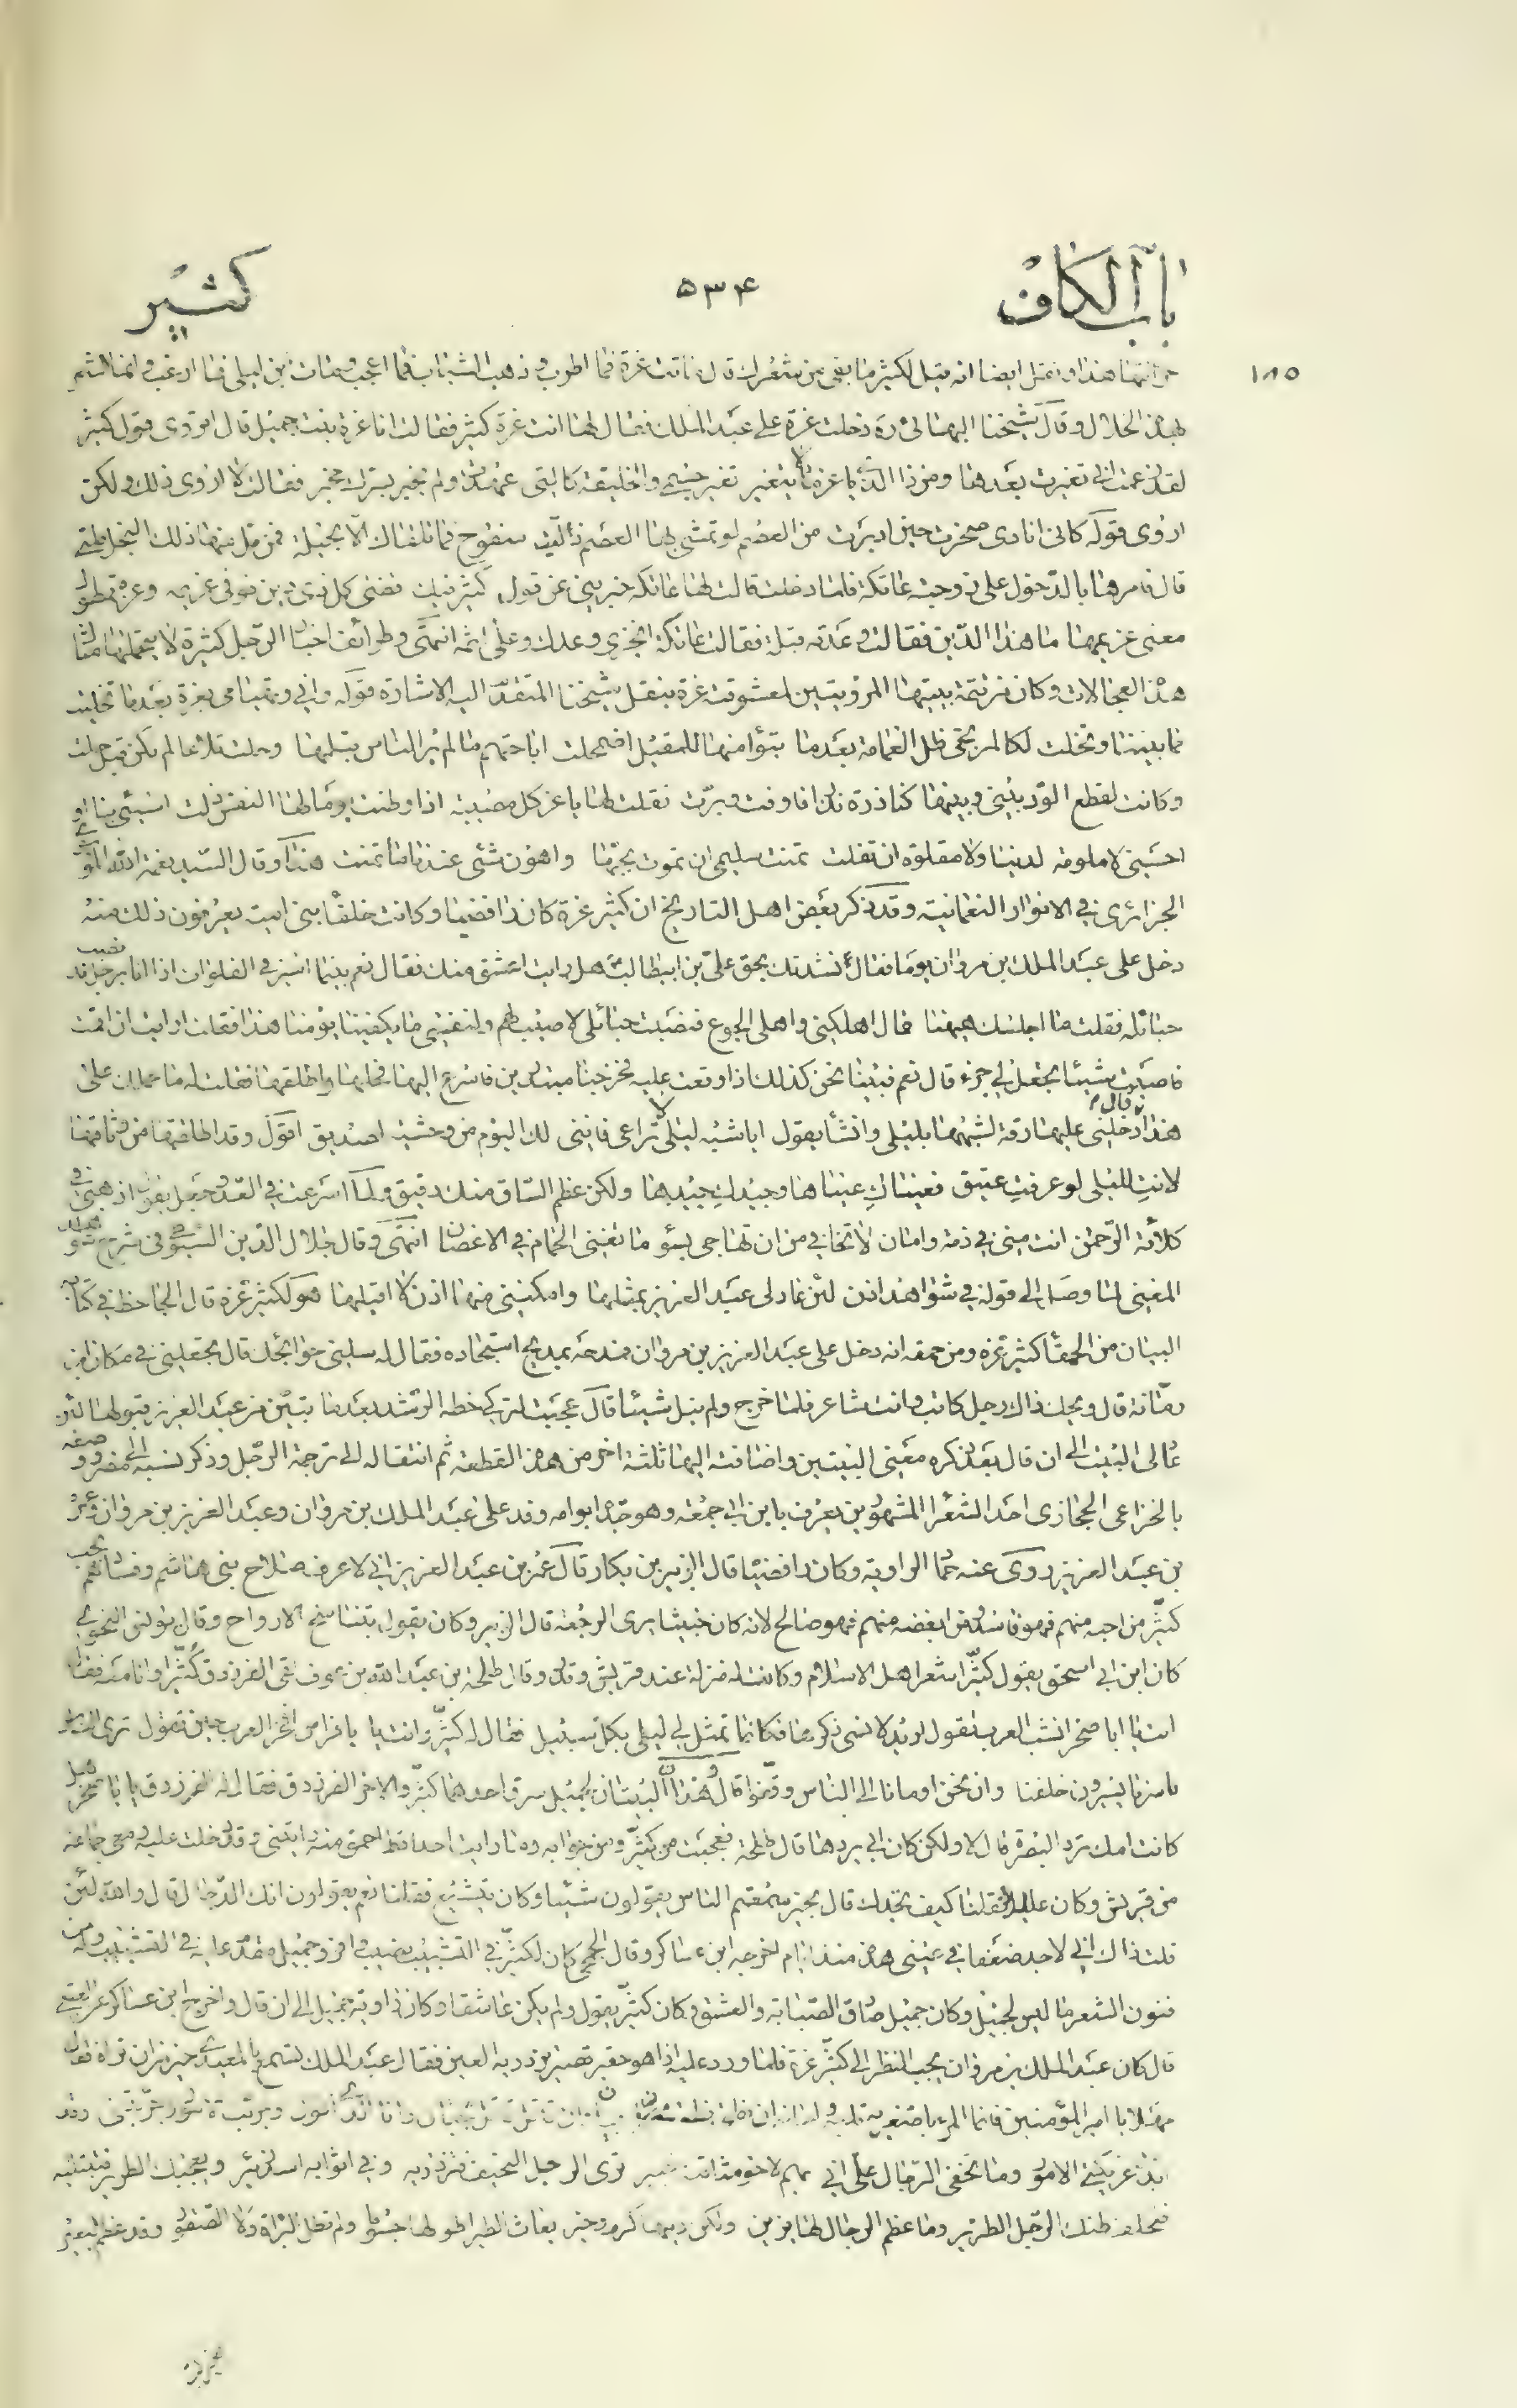 باب الكاف ۵۳۴ كثير
۱۸۵
هذا ونقل ايضا انه قيل لكثير ما بقى من شعرك قال ماتت عزة فما اطرب وذهب الشباب فما اعجب ومات ابن ليلى فما ارغب وانما الشعر
بهذه الخلال وقال شيخنا البهائى ره دخلت عزة على عبد الملك فقال لها انت عزة كثير فقالت انا عزة بنت جميل قال اتروى قول كثير
لقد زعمت انى تغيرت بعدها ومن ذا الذى يا عز لا يتغير تغير جسمى والخليقة كالتى عهدت ولم يخبر بسرك مخبر فقالت لا اروى ذلك ولكن
اروى قوله كانى انادى صخرة حين ادبرت من العصم لو تمشى بها العصم زلت صفوح فما تلقاك الا بخيلة فمن مل منها ذلك البخل ملت
قال فامر بها بالدخول على زوجته عاتكة فلما دخلت قالت لها عاتكة خبرينى عن قول كثير فيك قضى كل ذى دين فوفى غريمه وعزة ممطول
معنى غريمها ما هذا الدين فقالت وعدته قبلة فقالت عاتكة انجزى وعدك وعلى اثمه انتهى وطرائف اخبار الرجل كثيرة لا يتحملها امثال
هذه العجالات وكان من تتمة بيتيها المرويتين لمعشوقته عزة بنقل شيخنا المتقدم اليه الاشارة قوله وانى وتهيامى بعزة بعد ما تخليت
مما بيننا وتخلت لكالمرتجى ظل الغمامة بعد ما تبوأ منها للمقيل اضمحلت اباحت حمى لم يرعه الناس قبلها وحلت تلاعا لم تكن قبل حلت
وكانت لقطع الود بينى وبينها كناذرة نذرا فاوفت وبرت فقلت لها يا عز كل مصيبة اذا وطنت يوما لها النفس ذلت اسيئى بنا او
احسنى لا ملومة لدينا ولا مقلوة ان تقلت تمنت سليمى ان نموت بحبها واهون شئ عندنا ما تمنت هذا وقال السيد نعمة الله الموسوى
الجزائرى فى الانوار النعمانية وقد ذكر بعض اهل التاريخ ان كثير عزة كان رافضيا وكانت خلفاء بنى امية يعرفون ذلك منه
دخل على عبد الملك بن مروان يوما فقال نشدتك بحق على بن ابيطالب هل رايت اعشق منك فقال نعم بينما اسير فى الفلوات اذا انا برجل قد نصب
حبائله فقلت ما اجلسك هيهنا قال اهلكنى واهلى الجوع فنصبت حبائلى لاصيب لهم ولنفسى ما يكفينا يومنا هذا فقلت ارايت ان اقمت
فاصبت شيئا تجعل لى جزء قال نعم فبينا نحن كذلك اذ وقعت ظبية فخرجنا مبتدرين فاسرع اليها فحلها واطلقها فقلت له ما حملك على
هذا قال دخلتنى عليها رقة لشبهها بليلى وانشأ يقول ايا شبه ليلى لا تراعى فاننى لك اليوم من وحشية لصديق اقول وقد اطلقتها من وثاقها
لانت لليلى لو عرفت عتيق فعيناك عيناها وجيدك جيدها ولكن عظم الساق منك دقيق ولما اسرعت فى العدو جعل يقول اذهبى فى
كلائة الرحمن انت منى فى ذمة وامان لا تخافى من ان تهاجى بسوء ما تغنى الحمام فى الاغصان انتهى وقال جلال الدين السيوطى فى شرح شواهد
المغنى لما وصل الى قوله فى شواهد اذن لئن عاد لى عبد العزيز بمثلها وامكننى منها اذن لا اقيلها هو لكثير عزة قال الجاحظ فى كتاب
البيان من الحمقاء كثير عزة ومن حمقه انه دخل على عبد العزيز بن مروان فمدحه بمديح استجاده فقال له سلنى حوائجك قال تجعلنى فى مكان ابن
رمانة قال ويحك ذاك رجل كاتب وانت شاعر فلما خرج ولم ينل شيئا قال عجبت لتركى خطة الرشد بعد ما تبين من عبد العزيز قبولها لئن
عاد لى البيت الى ان قال بعد ذكره معنى البيتين واضافته اليها ثلثة اخر من هذه القطعة ثم انتقاله الى ترجمة الرجل وذكر نسبه الى مضر ووصفه
بالخزاعى الحجازى احد الشعراء المشهورين يعرف بابن ابى جمعة وهو جده ابو امه وفد على عبد الملك بن مروان وعبد العزيز بن مروان وعمر
بن عبد العزيز روى عنه حماد الراوية وكان رافضيا قال الزبير بن بكار قال عمر بن عبد العزيز انى لاعرف صلاح بنى هاشم وفسادهم بحب
كثير من احبه منهم فهو فاسد ومن ابغضه منهم فهو صالح لانه كان خبيثا يرى الرجعة قال الزبير وكان يقول بتناسخ الارواح وقال يونس النحوى
كان ابن ابى اسحق يقول كثير اشعر اهل الاسلام وكانت له منزلة عند قريش وقدر وقال طلحة بن عبد الله بن عوف لقى الفرزدق كثيرا وانا معه فقال
انت يا ابا صخر انسب العرب تقول اريد لانسى ذكرها فكانما تمثل لى ليلى بكل سبيل فقال له كثير وانت يا ابا فراس افخر العرب حين تقول ترى الناس
ما سرنا يسيرون خلفنا وان نحن اومانا الى الناس وقفوا قال وهذان البيتان لجميل سرق احدهما كثير والاخر الفرزدق فقال له الفرزدق يا ابا صخر هل
كانت امك ترد البصرة قال لا ولكن كان ابى يردها قال طلحة فعجبت من كثير ومن جوابه وما رايت احدا قط احمق منه رايتنى وقد دخلت عليه ومعى جماعة
من قريش وكان عليلا فقلنا كيف تجدك قال بخير سمعتم الناس يقولون شيئا وكان يتشيع فقلنا نعم يقولون انك الدجال قال والله لئن
قلت ذاك انى لاجد ضعفا فى عينى هذه منذ ايام اخرجه ابن عساكر وقال الجمحى كان لكثير فى التشبيب نصيب وافر وجميل مقدم عليه فى التشبيب وله من
فنون الشعر ما ليس لجميل وكان جميل صادق الصبابة والعشق وكان كثير يقول ولم يكن عاشقا وكان راوية جميل الى ان قال واخرج ابن عساكر عن العتبى
قال كان عبد الملك بن مروان يحب النظر الى كثير عزة فلما ورد عليه اذا هو حقير قصير تزدريه العين فقال عبد الملك تسمع بالمعيدى خير من ان تراه فقال
مهلا يا امير المؤمنين فانما المرء باصغريه قلبه ولسانه ان نطق نطق ببيان وان قاتل قاتل بجنان وانا الذى اقول وجربت الامور وجربتنى وقد
ابدت عريكتى الامور وما تخفى الرجال على انى بهم لاخو مثاقبة خبير ترى الرجل النحيف فتزدريه وفى اثوابه اسد يزئر ويعجبك الطرير فتبتليه
فيخلف ظنك الرجل الطرير وما عظم الرجال لها بزين ولكن زينها كرم وخير بغاث الطير اطولها جسوما ولم تطل البزاة ولا الصقور وقد عظم البعير